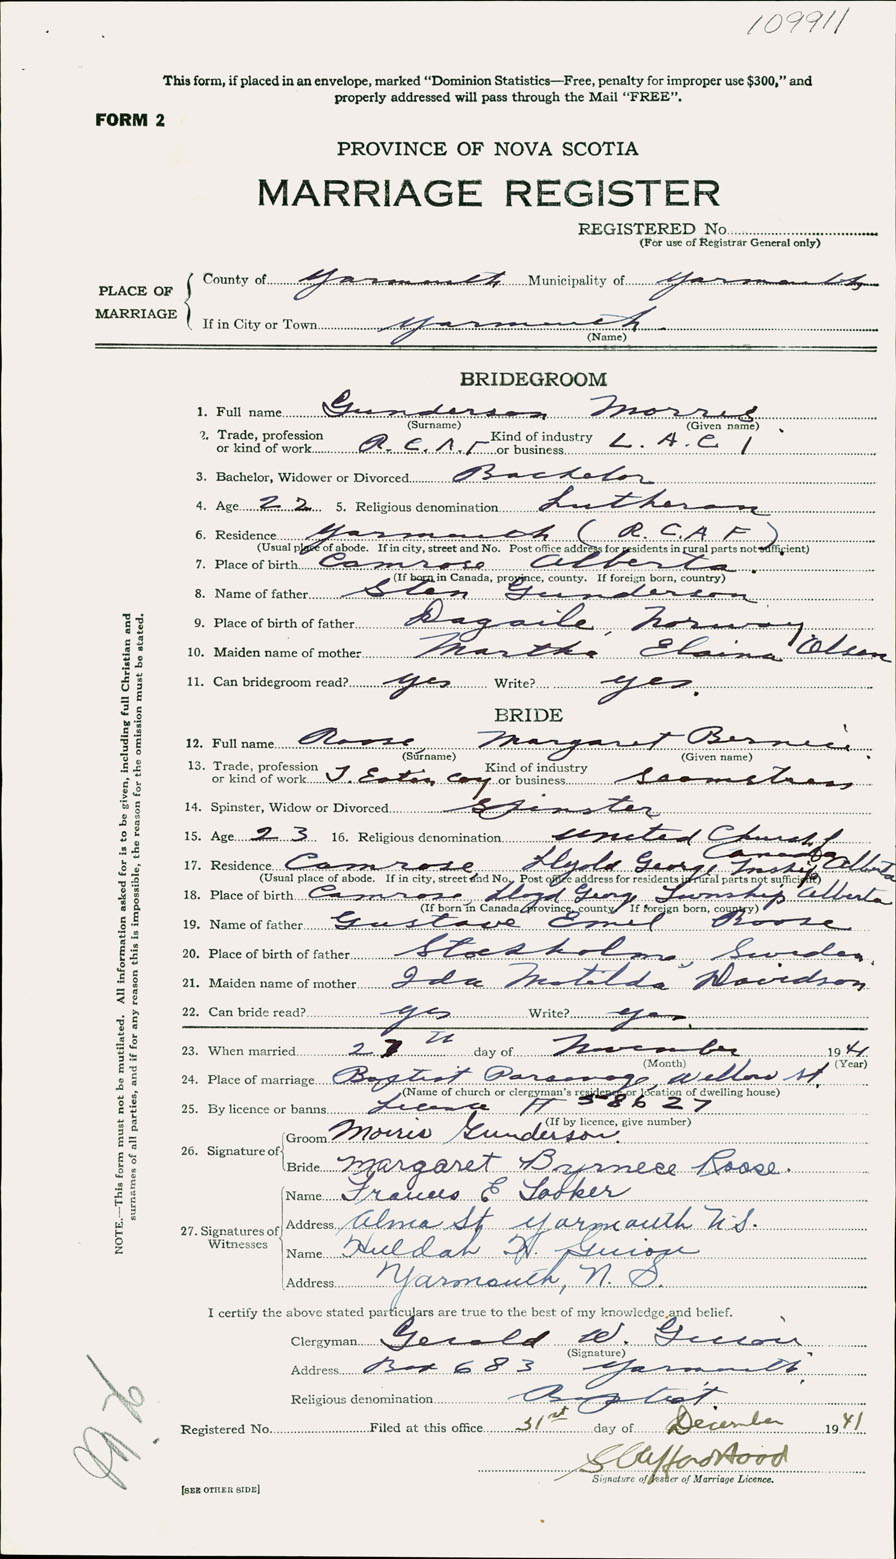 109911
This form, if placed in an envelope, marked “Dominion Statistics—Free, penalty for improper use $300,” and
properly addressed will pass through the Mail “FREE”.
FORM 2
PROVINCE OF NOVA SCOTIA
MARRIAGE REGISTER
REGISTERED No.
(For use of Registrar General only)
PLACE OF MARRIAGE
County of Yarmouth Municipality of Yarmouth
If in City or Town Yarmouth
(Name)
BRIDEGROOM
1. Full name Gunderson Morris
(Surname) (Given name)
2. Trade, profession or kind of work R.C.A.F Kind of industry or business L.A.C 1
3. Bachelor, Widower or Divorced Bachelor
4. Age 22 5. Religious denomination Lutheran
6. Residence Yarmouth (R.C.A.F)
(Usual place of abode. If in city, street and No. Post office address for residents in rural parts not sufficient)
7. Place of birth Camrose Alberta.
(If born in Canada, province, county. If foreign born, country)
8. Name of father Sten Gunderson
9. Place of birth of father Norway
10. Maiden name of mother Martha Elaina Olsen
11. Can bridegroom read? yes Write? yes.
BRIDE
12. Full name Roose Margaret Bernice
(Surname) (Given name)
13. Trade, profession or kind of work T. Eaton Coy Kind of industry or business Seamstress
14. Spinster, Widow or Divorced Spinster
15. Age 23 16. Religious denomination United Church Canada
17. Residence Camrose, Lloyd George Tnship Alberta
(Usual place of abode. If in city, street and No. Post office address for residents in rural parts not sufficient)
18. Place of birth Camrose Lloyd Georg Township Alberta
(If born in Canada, province, county. If foreign born, country)
19. Name of father Gustave Emel Roose
20. Place of birth of father Stockholm, Sweden.
21. Maiden name of mother Ida Matilda Davidson
22. Can bride read? yes Write? yes.
23. When married 27th day of November 1941
(Month) (Year)
24. Place of marriage Baptist Parsonage, Willow St.
(Name of church or clergyman's residence or location of dwelling house)
25. By licence or banns Licence # 58627
(If by licence, give number)
26. Signature of
Groom Morris Gunderson.
Bride Margaret Byrnece Roose.
27. Signatures of Witnesses
Name Frances E Tooker
Address Alma St Yarmouth N.S.
Name Huldah H. Guiou
Address Yarmouth, N. S.
I certify the above stated particulars are true to the best of my knowledge and belief.
Clergyman Gerald W. Guiou
(Signature)
Address Box 683 Yarmouth
Religious denomination Baptist
Registered No. Filed at this office 31st day of December 1941
S Clifford Hood
Signature of Issuer of Marriage Licence.
[SEE OTHER SIDE]
NOTE.—This form must not be mutilated. All information asked for is to be given, including full Christian and
surnames of all parties, and if for any reason this is impossible, the reason for the omission must be stated.